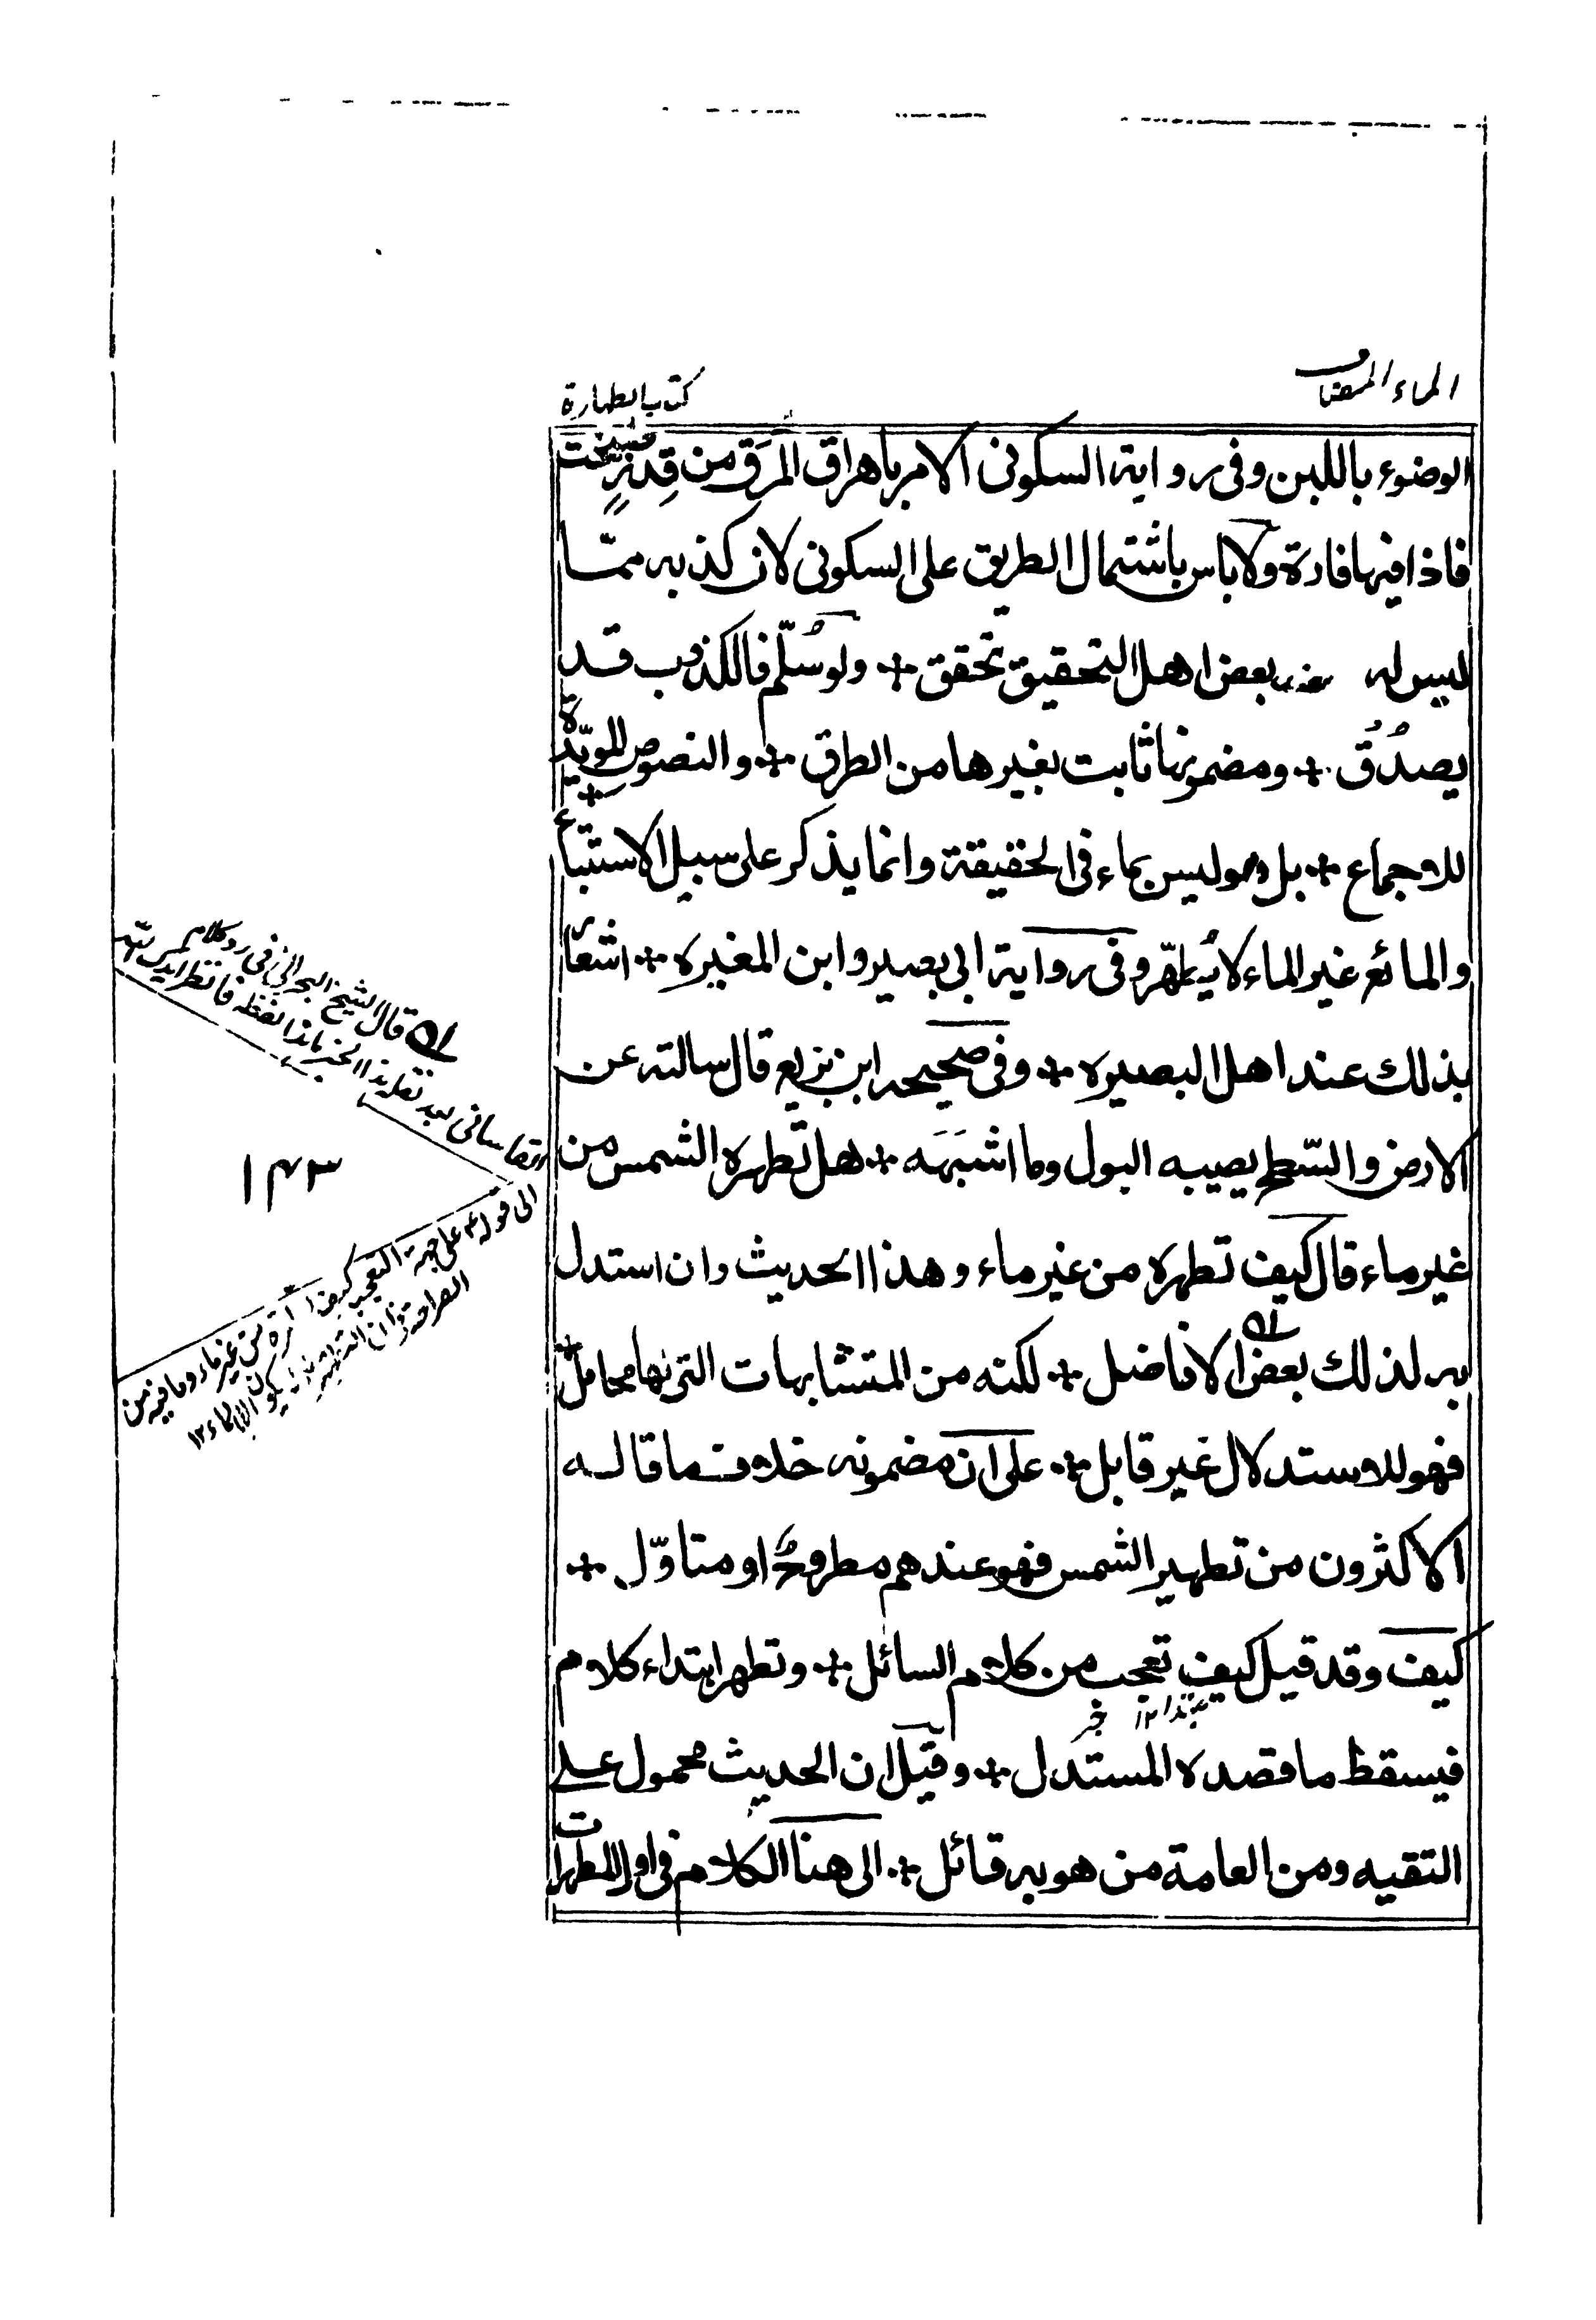 الماء المضاف
كتاب الطهارة
الوضوء باللبن وفی رواية السكونی الامر باهراق المرَق من قِدرٍ طبخت
فاذا فيها فارة ولا باس باشتمال الطريق علی السكونی لان كذبه ممّا
ليس له عند بعض اهل التحقيق تحقق ولو سُلّم فالكذوب قد
يصدُقُ ومضمونها ثابت بغيرها من الطرق والنصوص المويّدة
للاجماع بل هو ليس بماء فی الحقيقة وانما يذكر علی سبيل الاستتباع
والمائع غير الماء لا يُطهّر وفی رواية ابی بصير وابن المغيره اشعار
بذلك عند اهل البصيره وفی صحيحه ابن بزيع قال سالته عن
الارض والسّطح يصيبه البول وما اشبَهَه هل تُطهره الشمس من
غير ماء قال كيف تطهره من غير ماء وهذا الحديث وان استدل
به لذلك بعض الافاضل لكنه من المتشابهات التی لها محامل
فهو للاستدلال غير قابل علی ان مضمونه خلاف ما قاله
الاكثرون من تطهير الشمس فهو عندهم مطروحٌ او متاوّل
كيف وقد قيل كيف تعجب من كلام السائل وتطهر ابتداء كلام
مبتدا ١٢ خبر
فيسقط ما قصده المستدل وقيل ان الحديث محمول علی
التقيه ومن العامة من هو به قائل الی هنا الكلام فی اول المطهرات
قال الشيخ البحرانی فی رد كلام
القاسانی بعد نقل هذا الخبر ما هذا لفظه فانظر ايدك الله
الی قوله ع علی جهة التعجب كيف تطهره من غير ماء وما فيه من
الصراحة فی ان التطهير لا يكون الا بالماء ١٢
١٤٣